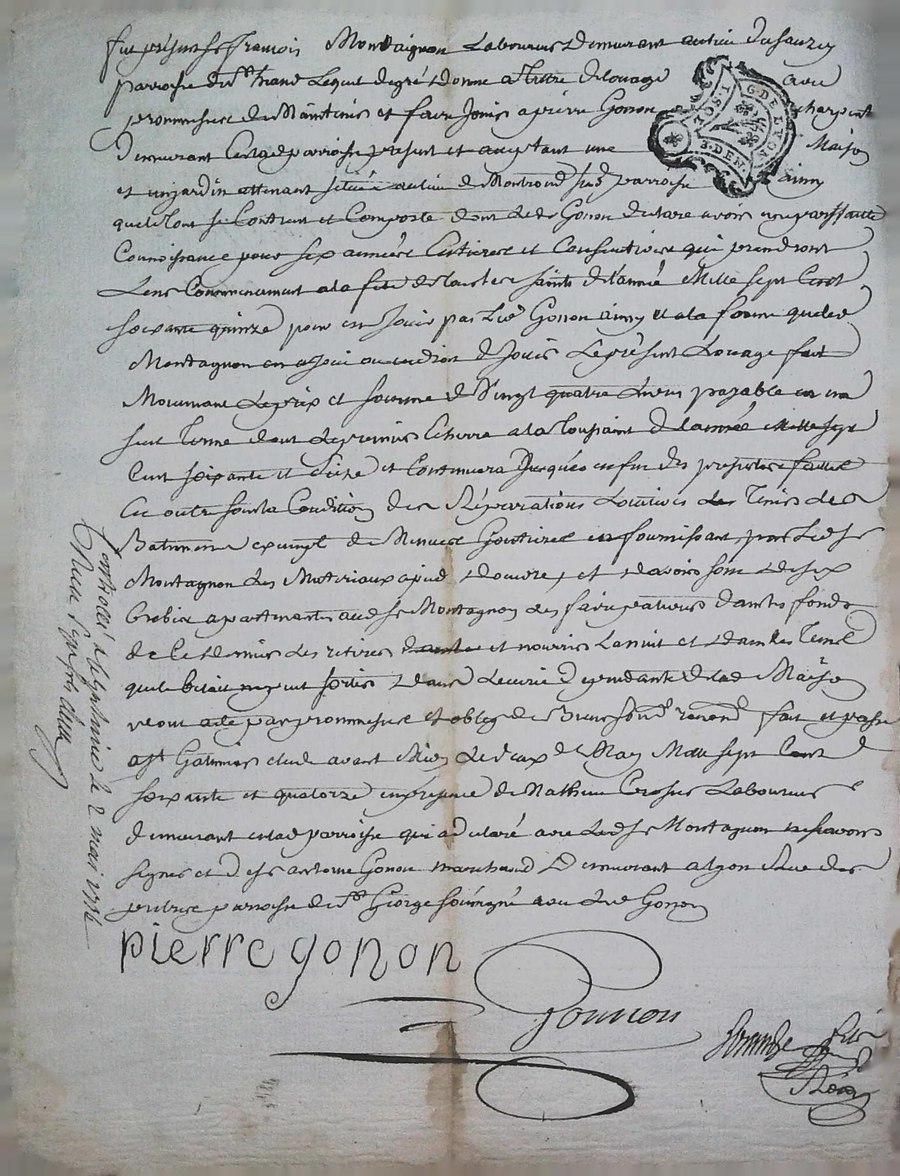 fut présent Sr François Montaignon Laboureur Demeurant au lieu du
parroisse de St Lequel de gré donne a titre de louage avec
prommesse de Maintenir et faire Jouir a pierre Gonon charpent
Demeurant en lad parroisse présent et acceptant une Maison
et un jardin attenant situés au lieu de Montrond susd parroisse ainsy
quele tout se Contient et Comporte dont led Gonon declare avoir une parffaitte
Connoissance pour six années Entieres et Consecutives qui prendront
Leur Commencement a la fete de Tous les saints de l'année Mille sept Cent
soixante quinze pour en Jouir par led Gonon ainsy et a la forme que led
Montagnon en a joui ou eu droit de Jouir Le présent Louage fait
Moyenant le prix et somme de Vingt quatre Livres payable en un
seul terme dont le premier Echerra a la Toussaint de l'année Mille sept
Cent soixante et seize et Continuera Jusques en fin des presentes faitte
en outre sous la Condition des Réparations Locatives
Batiments exempt de Menues Goutieres en fournissant par led Sr
Montagnon les Materiaux a pied d'œuvre, et d'avoir soin de six
Brebix apartenants aud Sr Montagnon les faire paturer dans les fonds
de ce dernier les retirer et nourrir la nuit et dans les Tems
quele bétail ne peut sortir dans l'ecurie dependante de lad Maison
par prommesse et oblig de Biens soum renond fait et passé
a St Galmier etude avant Midy le deux de May Mille sept Cent
soixante et quatorze en presence de Mathieu Laboureur
demeurant en lad parroisse qui a declaré avec led Sr Montagnon ne scavoir
signer et de Sr antoine Gonon marchand Demeurant a Lyon Rue des
parroisse de St George soussigné avec led Gonon
pierre gonon
Gonnon
Controllé a St Galmier le 2 mai 177
Reçu
G. DE LYON
1. SOL
3. DEN